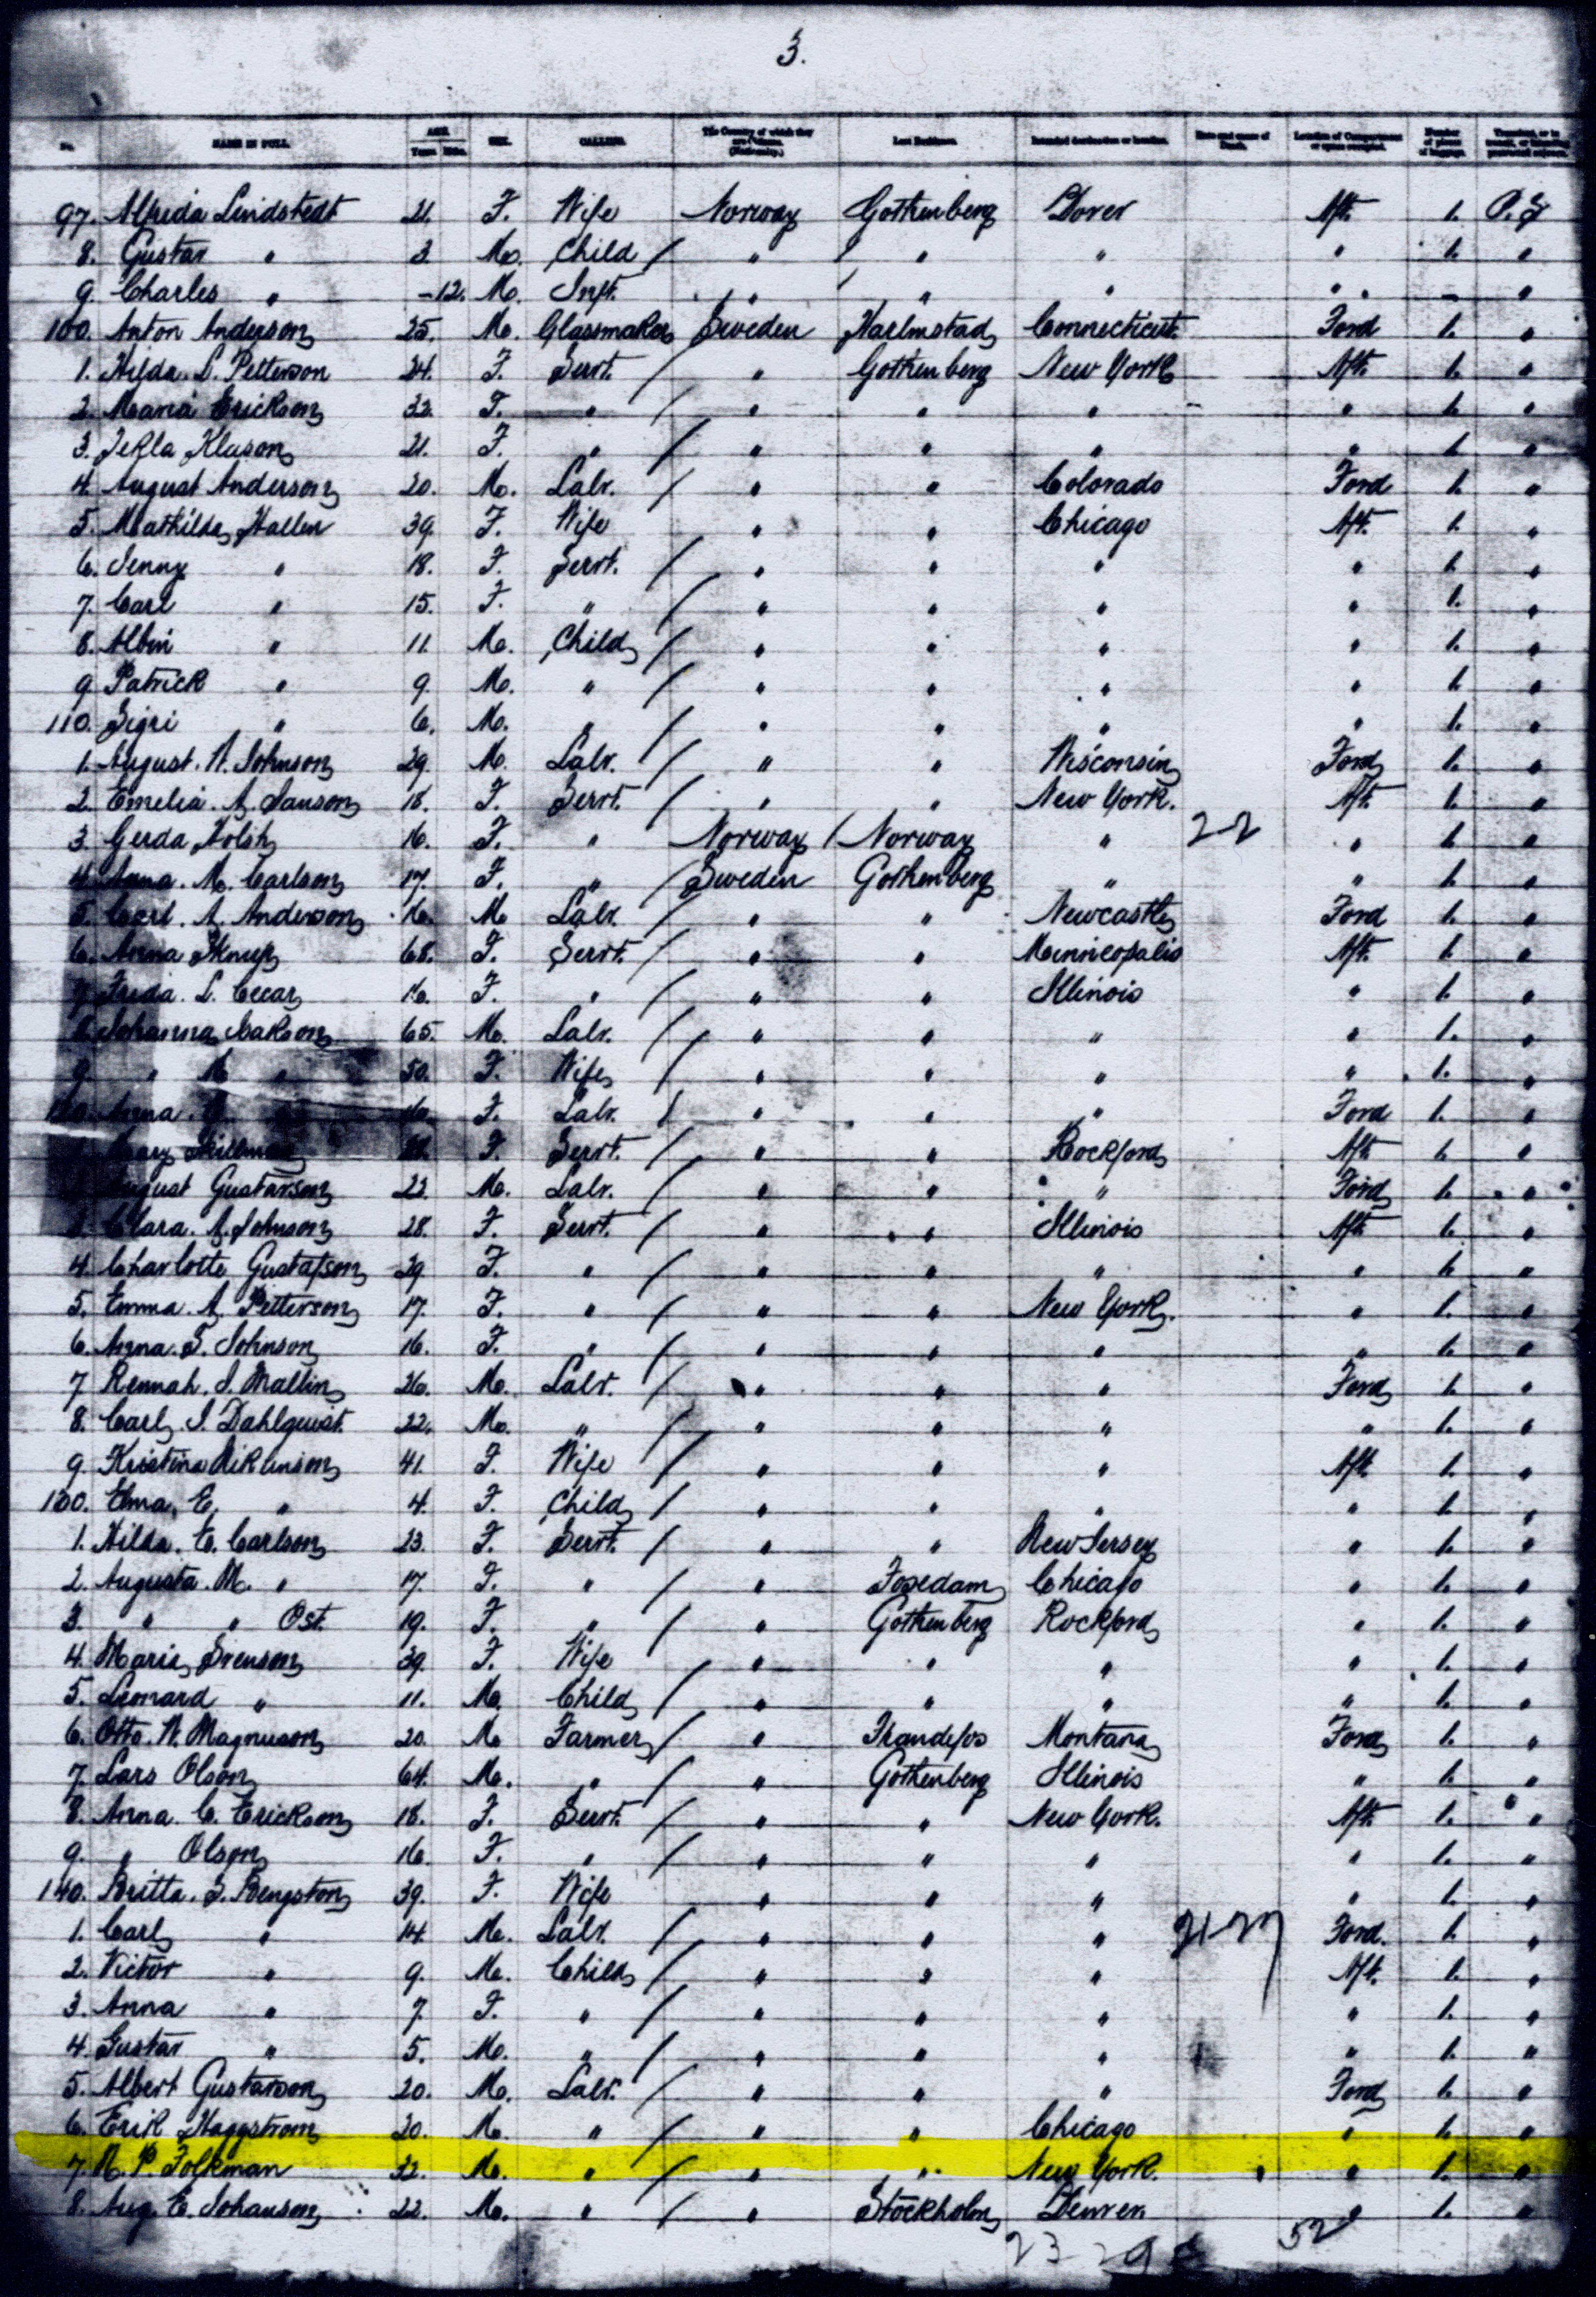 3.
No. NAME IN FULL. AGE. Years Mths. SEX. CALLING. The Country of which they are Citizens. (Nationality.) Last Residence. Intended destination or location. Date and cause of Death. Location of Compartment or space occupied. Number of pieces of baggage. Transient, or in transit, or intending protracted sojourn.
97. Alfrida Lindstedt 21. F. Wife Norway Gothenberg Dover Aft. 1. P.S
8. Gustav " 3. M. Child / " / " " " 1. "
9. Charles " -12. M. Inft. " " " " "
100. Anton Anderson 25. M. Glassmaker Sweden Harlmstad Connecticut. Ford 1. "
1. Hilda. L. Petterson 24. F. Servt. / " Gothenberg New York Aft. 1. "
2. Maria Erickson 32. F. " / " " " " 1. "
3. Tekla Kluson 21. F. " / " " " " 1. "
4. August Anderson 20. M. Labr. / " " Colorado Ford 1. "
5. Mathilda Hallen 39. F. Wife " " Chicago Aft. 1. "
6. Jenny " 18. F. Servt. / " " " " 1. "
7. Carl " 15. F. " / " " " " 1. "
8. Albin " 11. M. Child / " " " " 1. "
9. Patrick " 9. M. " / " " " " 1. "
110. Sigri " 6. M. " / " " " " 1. "
1. August. W. Johnson 29. M. Labr. / " " Wisconsin Ford 1. "
2. Emelia. A. Janson 18. F. Servt. / " " New York. Aft. 1. "
3. Gerda 16. F. " Norway / Norway " 2-2 " 1. "
4. Anna. M. Carlson 17. F. " / Sweden Gothenberg " " 1. "
5. Carl. A. Anderson 16. M. Labr. / " " Newcastle Ford 1. "
6. Anna 68. F. Servt. / " " Minneopalis Aft. 1. "
7. Frida. L. 16. F. " / " " Illinois " 1. "
Johanna 65. M. Labr. / " " " " 1. "
9. " M " 50. F. Wife / " " " " 1. "
Anna. F. Labr. / " " " Ford 1. "
F. Servt. / " " Rockford Aft 1. "
August Gustavson 22. M. Labr. / " " " Ford 1. "
Clara. A. Johnson 28. F. Servt. / " " Illinois Aft 1. "
4. Charlotte Gustafson 29. F. " / " " " " 1. "
5. Emma. A. Petterson 17. F. " / " " New York. " 1. "
6. Anna. S. Johnson 16. F. " / " " " " 1. "
7 Rennah. I. Mallin 26. M. Labr. / " " " Ford 1. "
8. Carl. I. Dahlquist. 22. M. " / " " " " 1. "
9. Kristina 41. F. Wife / " " " Aft 1. "
130. Elma, E. " 4. F. Child / " " " " 1. "
1. Hilda. E. Carlson 23. F. Servt. / " " New Jersey " 1. "
2. Augusta. M. " 17. F. " / " Chicago " 1. "
3. " " Ost. 19. F. " / " Gothenberg Rockford " 1. "
4. Maria Svenson 39. F. Wife / " " " " 1. "
5. Leonard " 11. M. Child / " " " " 1. "
6. Otto. W. Magnuson 20. M. Farmer / " Montana Ford 1. "
7. Lars Olson 64. M. " / " Gothenberg Illinois " 1. "
8. Anna. C. Erickson 18. F. Servt. / " " New York. Aft. 1. "
9. " Olson 16. F. " / " " " " 1. "
140. Britta. S. Bengston 39. F. Wife " " " " 1. "
1. Carl " 14. M. Labr. / " " " Ford. 1. "
2. Victor " 9. M. Child / " " " Aft. 1. "
3. Anna " 7. F. " / " " " " 1. "
4. Gustav " 5. M. " / " " " " 1. "
5. Albert Gustavson 20. M. Labr. / " " " Ford 1. "
6. Erik Haggstrom 20. M. " / " " Chicago " 1. "
7. N. P. Folkman 32. M. " / " " New York. " 1. "
8. Aug. E. Johanson 22. M. " / " Stockholm Denver " 1. "
23 29 52